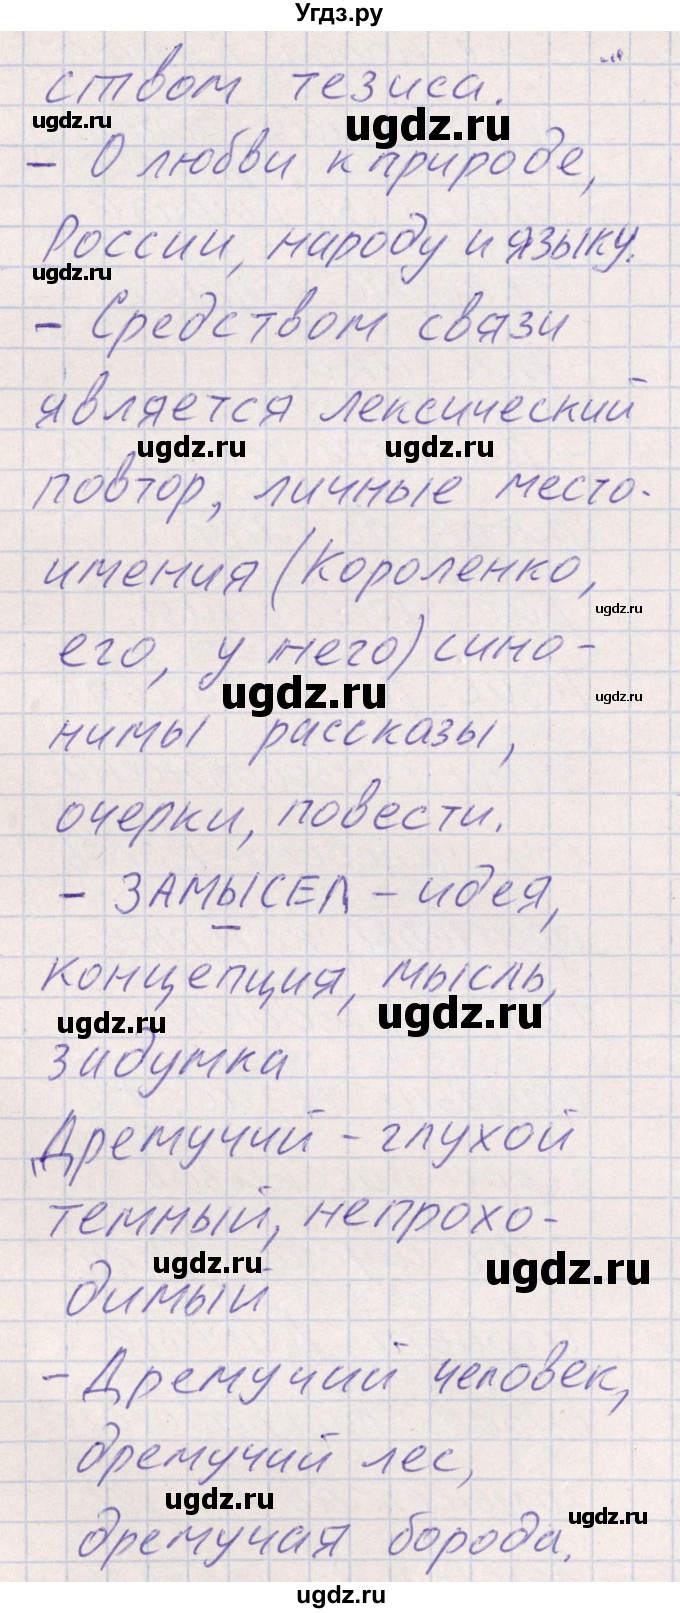 Угдз.ру
ством тезиса.
ugdz.ru ugdz.ru
- О любви к природе,
России, народу и языку.
ugdz.ru
- Средством связи
является лексический
ugdz.ru ugdz.ru
повтор, личные место-
имения (Короленко,
ugdz.ru
его, у него) сино-
ugdz.ru ugdz.ru
нимы рассказы,
очерки, повести.
- ЗАМЫСЕЛ - идея,
концепция, мысль,
ugdz.ru ugdz.ru
зидумка
Дремучий - глухой
темный, непрохо-
ugdz.ru ugdz.ru
димый
- Дремучий человек,
дремучий лес,
ugdz.ru ugdz.ru
дремучая борода.
ugdz.ru